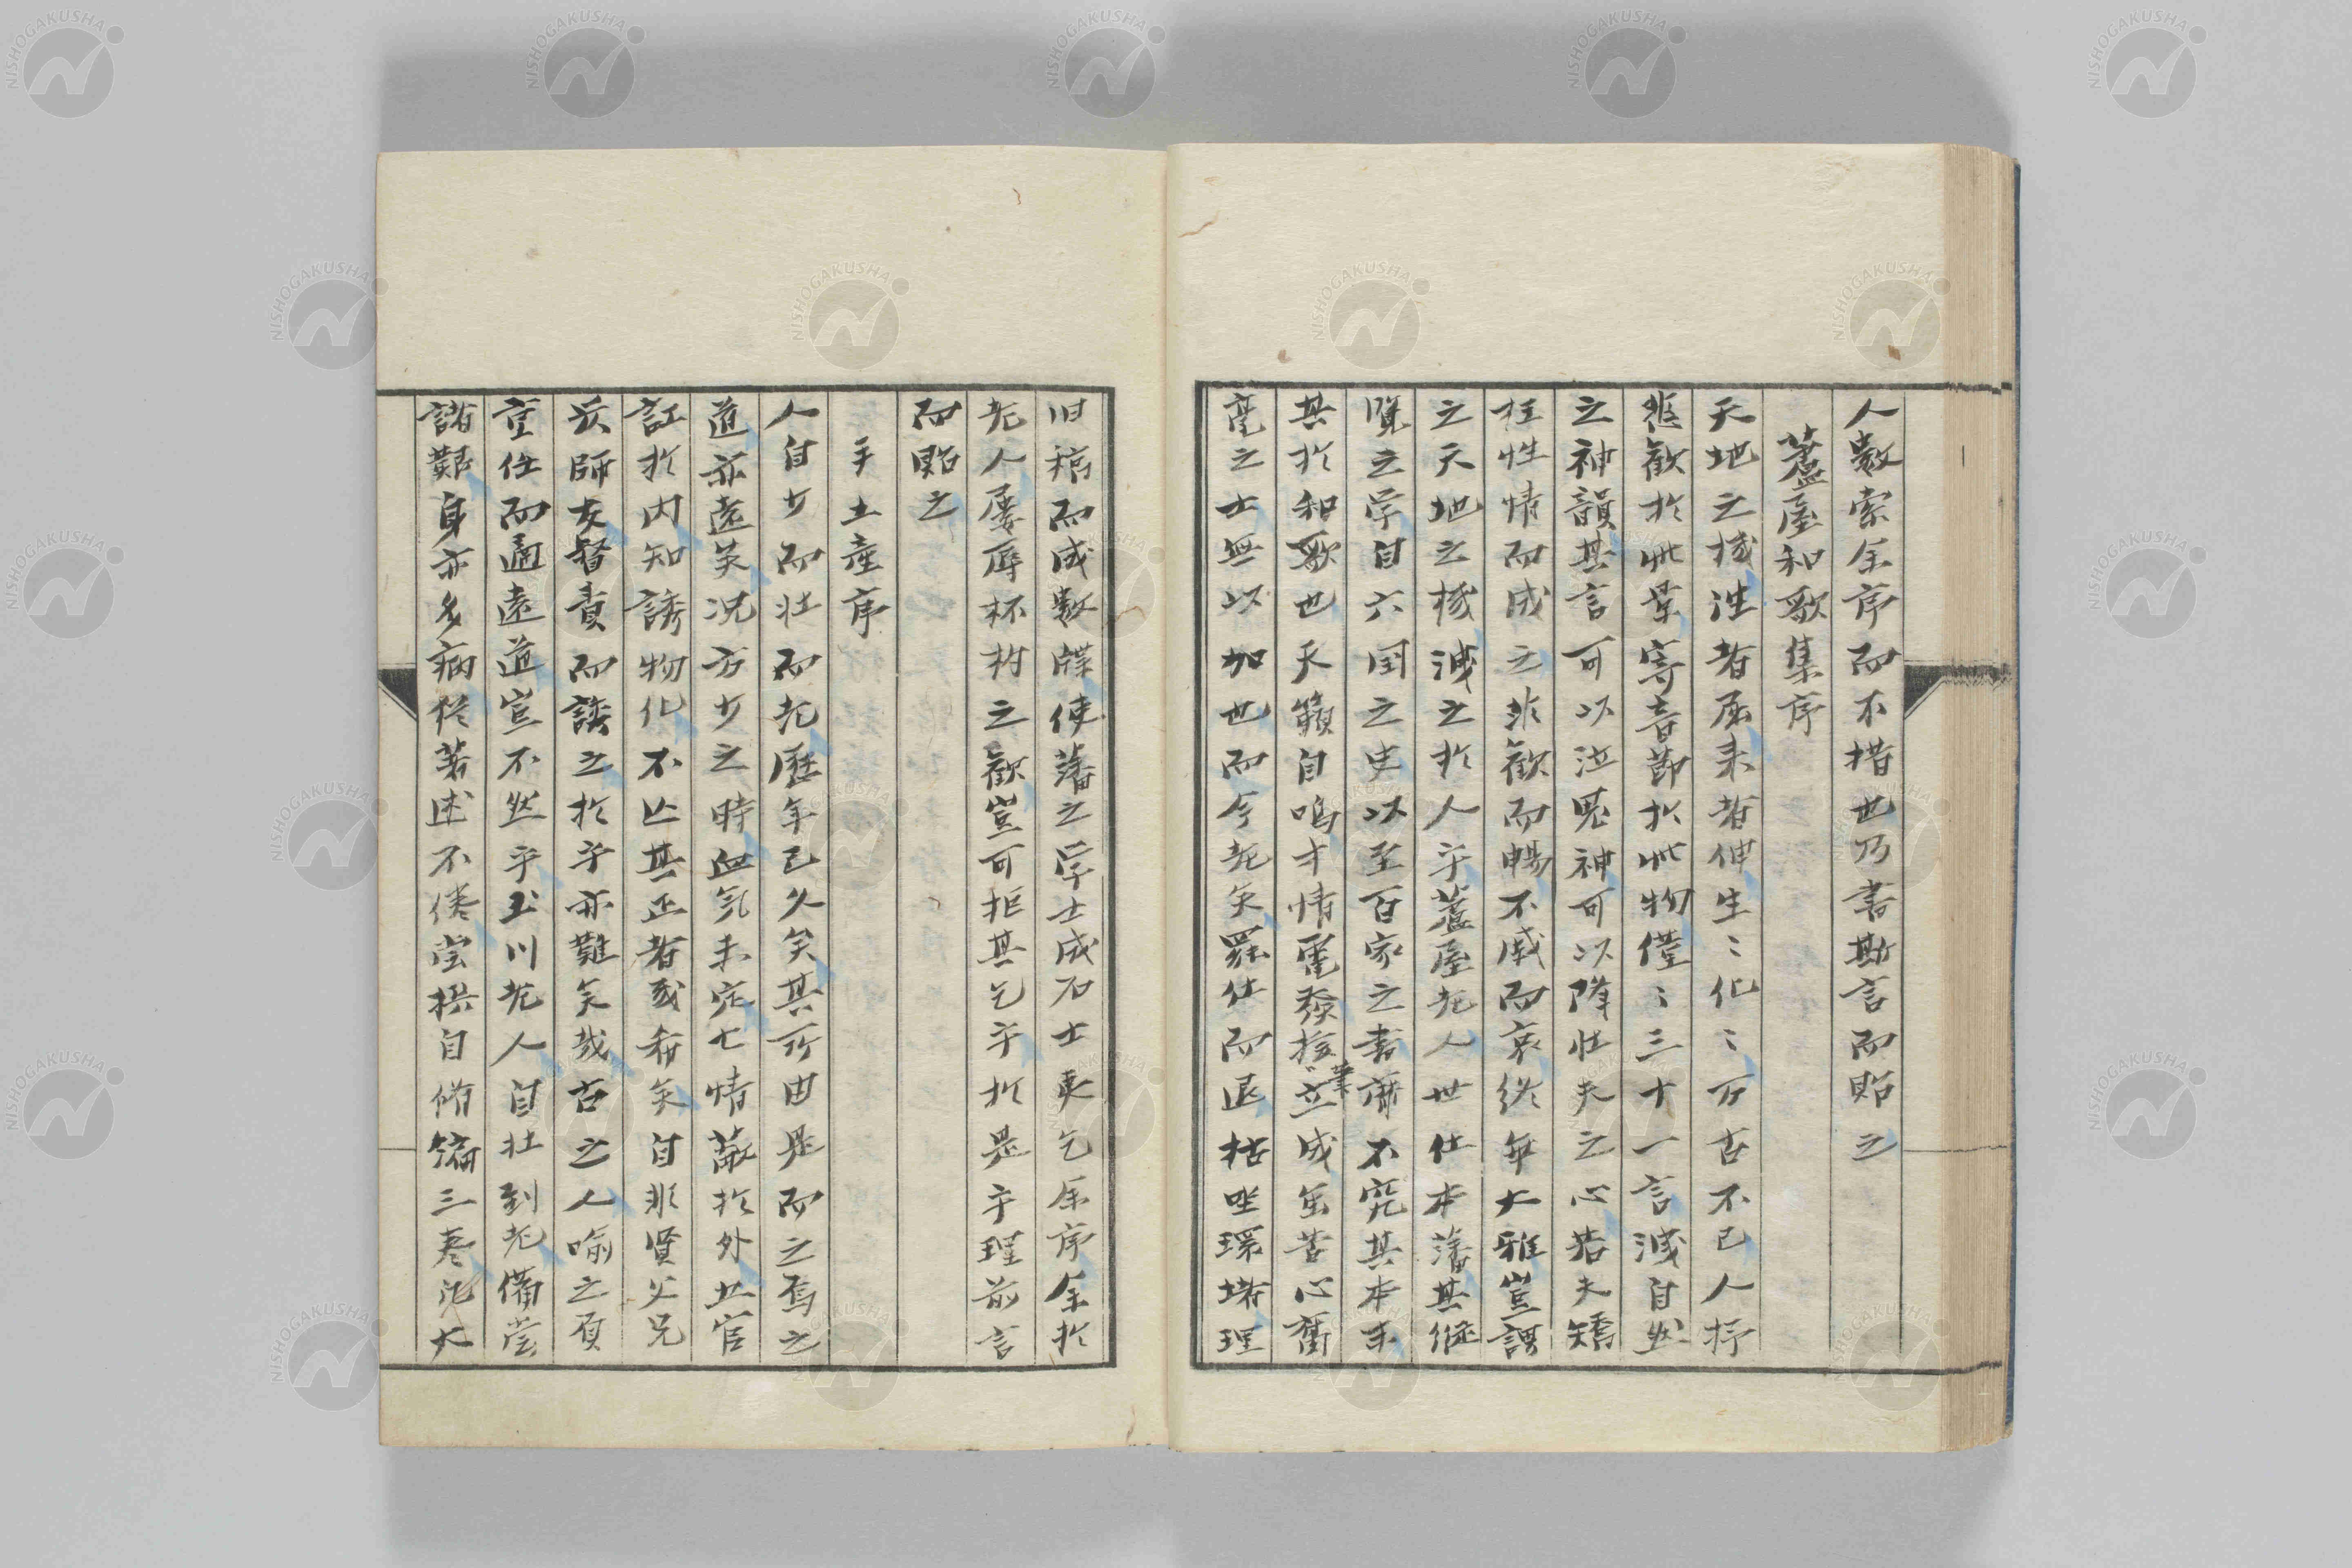 人数索余序而不措也乃書斯言而貽之
蘆屋和歌集序
天地之機往者屈来者伸生〻化〻万古不已人抒
悲歓於此景寄音節於此物僅〻三十一言減自然
之神韻其言可以泣鬼神可以降壮夫之心若夫矯
枉性情而成之非歓而暢不戚而哀終無大雅豈謂
之天地之機減之於人乎蘆屋老人世仕本藩其継
覧之学自六国之史以至百家之書齋不究其本末
其於和歌也天籟自鳴才情電発援筆立成虽苦心奮
毫之士無以加也而今老矣羅仕而退枯坐環堵理
旧稿而成数牒使藩之学士成石士東乞余序余於
老人屡辱杯酌之歓豈可拒其乞乎於是乎理前言
而貽之
手土産序
人自少而壮而老歴年已久矣其所由是而之焉之
道亦遠矣况方少之時血気未定七情蔽於外五官
訌於内知誘物化不亡其正者或希矣自非賢父兄
及師友督責而誘之於乎亦難矣哉古之人喩之負
重任而適遠道豈不然乎玉川老人自壮到老備嘗
諸艱身亦多病從著述不倦嘗撰自脩編三巻沢大
NISHOGAKUSHA